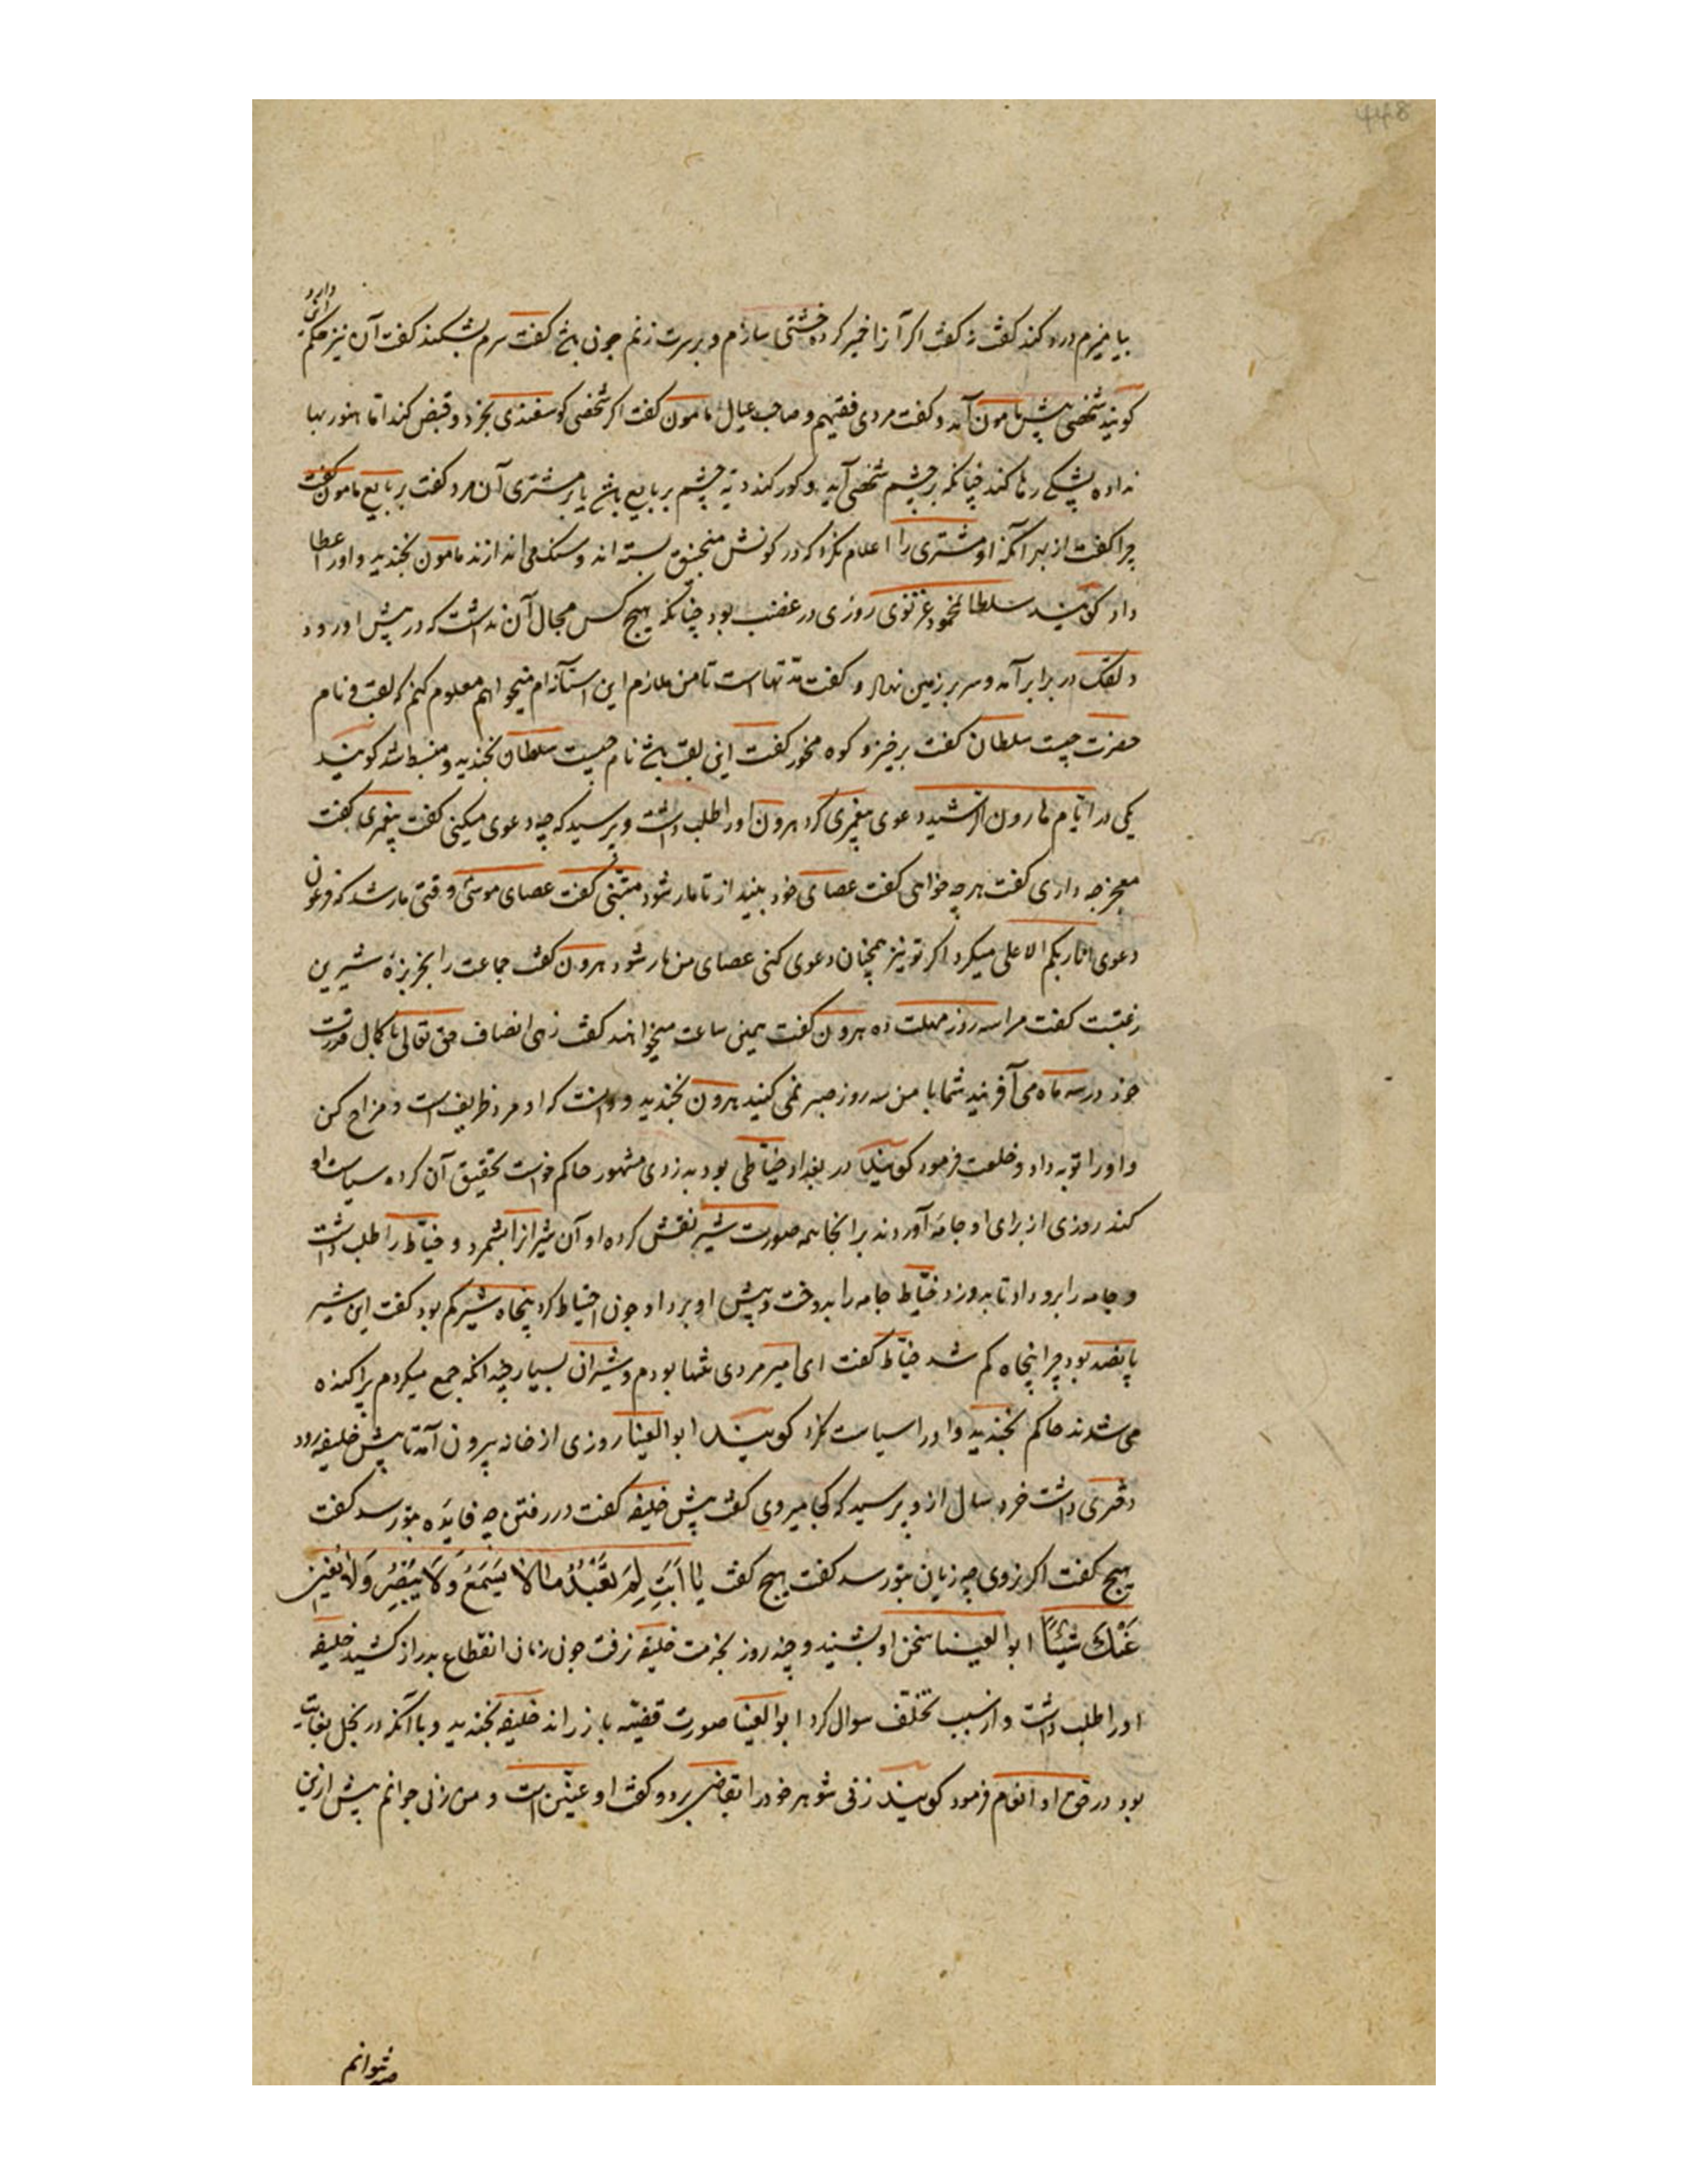 448
بیامیزم درد کند گفت نه گفت اگر آنرا خمیر کرده خشتی سازم و بر سرت زنم چون باشد گفت سرم بشکند گفت آن نیز حکم این دارد
کویند شخصی پیش مامون آمد و گفت مردی فقیهم و صاحب عیال مامون گفت اگر شخصی کوسفندی بخرد و قبض کند اما هنوز بها
نداده پشکی رها کند چنانکه بر چشم شخصی آید و کور کند دیه چشم بر بایع باشد یا بر مشتری آن مرد گفت بر بایع مامون گفت
چرا گفت از بهر آنکه او مشتری را اعلام نکرد که در کونش منجنیق بسته اند و سنک می اندازند مامون بخندید و اورا عطا
داد کویند سلطان محمود غزنوی روزی در غضب بود چنانکه هیچ کس مجال آن نداشت که در پیش او رود
دلقک در برابر آمد و سر بر زمین نهاد و گفت مدتهاست تا من ملازم این آستانه ام میخواهم معلوم کنم که لقب و نام
حضرت چیست سلطان گفت برخیز و کوه مخور گفت این لقب باشد نام چیست سلطان بخندید و منبسط شد کویند
یکی در ایام هارون الرشید دعوی پیغمبری کرد هرون اورا طلب داشت و پرسید که چه دعوی میکنی گفت پیغمبری گفت
معجزه چه داری گفت هر چه خواهی گفت عصای خود بینداز تا مار شود متنبی گفت عصای موسی وقتی مار شد که فرعون
دعوی انا ربکم الاعلی میکرد اگر تو نیز همچنان دعوی کنی عصای من مار شود هرون گفت جماعت را بخربزه شیرین
رغبتست گفت مرا سه روز مهلت ده هرون گفت همین ساعت میخواهند گفت زهی انصاف حق تعالی با کمال قدرت
خود در سه ماه می آفریند شما با من سه روز صبر نمی کنید هرون بخندید و دانست که او مرد ظریفست و مزاح کن
و اورا توبه داد و خلعت فرمود کویند در بغداد خیاطی بود بدزدی مشهور حاکم خواست تحقیق آن کرده سیاست او
کند روزی از برای او جامه آوردند بر انجا همه صورت شیر نقش کرده او آن شیرانرا بشمرد و خیاط را طلب داشت
و جامه را برو داد تا بدوزد خیاط جامه را بدوخت و پیش او برد چون احتیاط کرد پنجاه شیر کم بود گفت این شیر
پانصد بود چرا پنجاه کم شد خیاط گفت ای امیر مردی تنها بودم و شیران بسیار چندانکه جمع میکردم پراکنده
می شدند حاکم بخندید و اورا سیاست نکرد کویند ابو العینا روزی از خانه بیرون آمد تا پیش خلیفه رود
دختری داشت خرد سال از و پرسید که کجا میروی گفت پیش خلیفه گفت در رفتن چه فایده بتو رسد گفت
هیچ گفت اگر نروی چه زیان بتو رسد گفت هیچ گفت یَا اَبَتِ لِمَ تَعْبُدُ مَا لَا یَسْمَعُ وَ لَا یُبْصِرُ وَ لَا یُغْنِی
عَنْكَ شَیْئًا ابو العینا سخن او بشنید و چند روز بخدمت خلیفه نرفت چون زمان انقطاع بدراز کشید خلیفه
اورا طلب داشت و از سبب تخلف سوال کرد ابو العینا صورت قضیه باز راند خلیفه بخندید و با آنکه در بخل بغایت
بود در حق او انعام فرمود کویند زنی شوهر خود را بقاضی برد و گفت او عنین است و من زنی جوانم پیش ازین